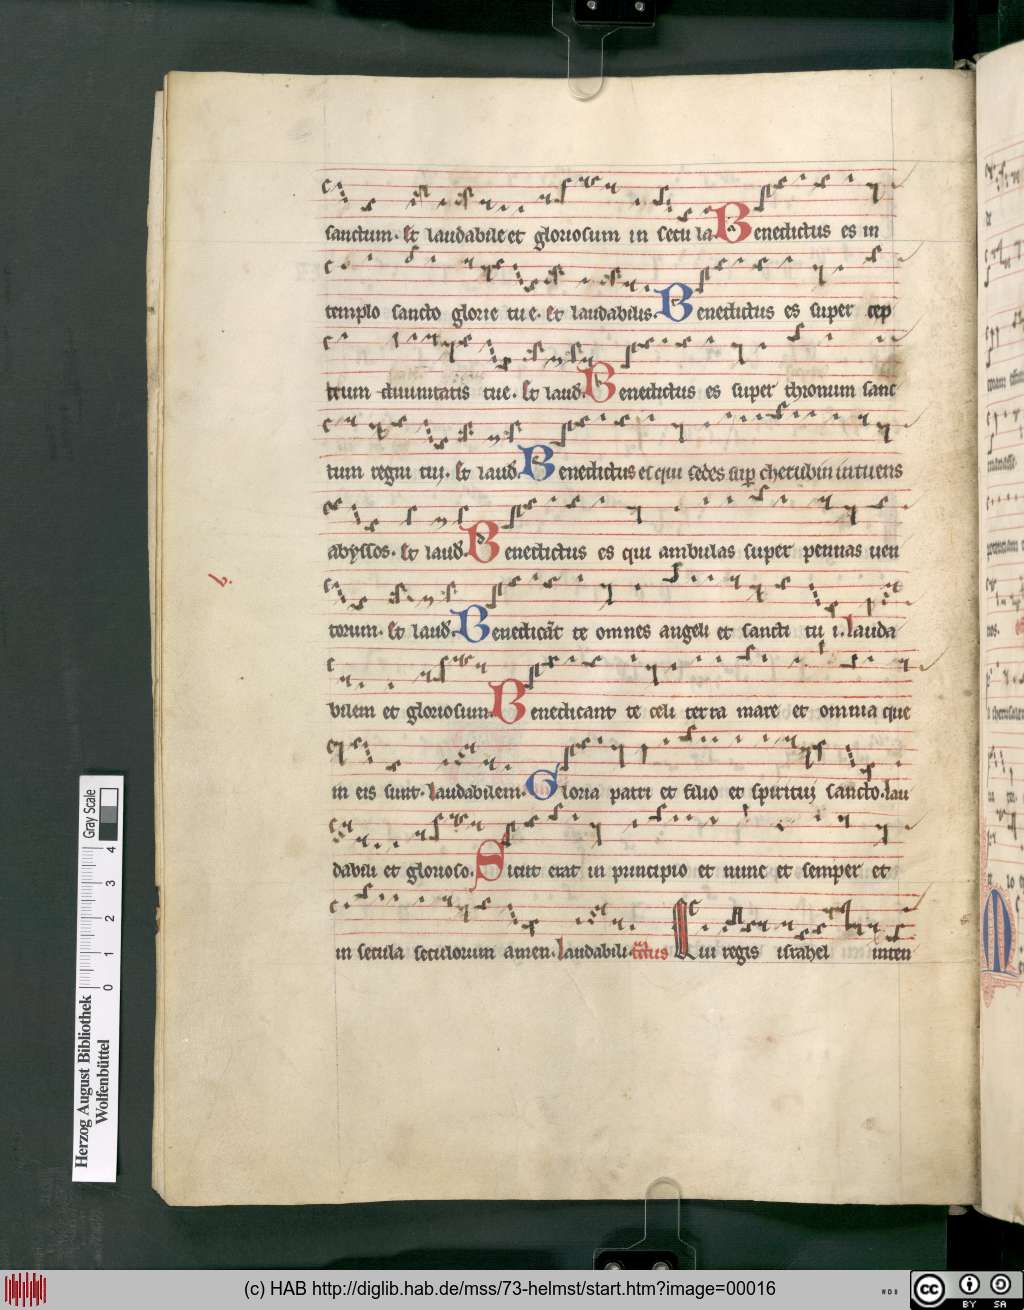 sanctum. Et laudabile et gloriosum in secula. Benedictus es in
templo sancto glorie tue. et laudabilis. Benedictus es super scep
trum diuinitatis tue. Et laud. Benedictus es super thronum sanc
tum regni tui. Et laud. Benedictus es qui sedes sup cherubin intuens
abyssos. Et laud. Benedictus es qui ambulas super pennas uen
torum. Et laud. Benedicāt te omnes angeli et sancti tui. lauda
bilem et gloriosum. Benedicant te celi terra mare et omnia que
in eis sunt. laudabilem. Gloria patri et filio et spiritui sancto. lau
dabili et glorioso. Sicut erat in principio et nunc et semper et
in secula seculorum amen. laudabili. Qui regis israhel inten
Herzog August Bibliothek
Wolfenbüttel
0 1 2 3 4
Gray Scale
(c) HAB http://diglib.hab.de/mss/73-helmst/start.htm?image=00016
cc BY SA